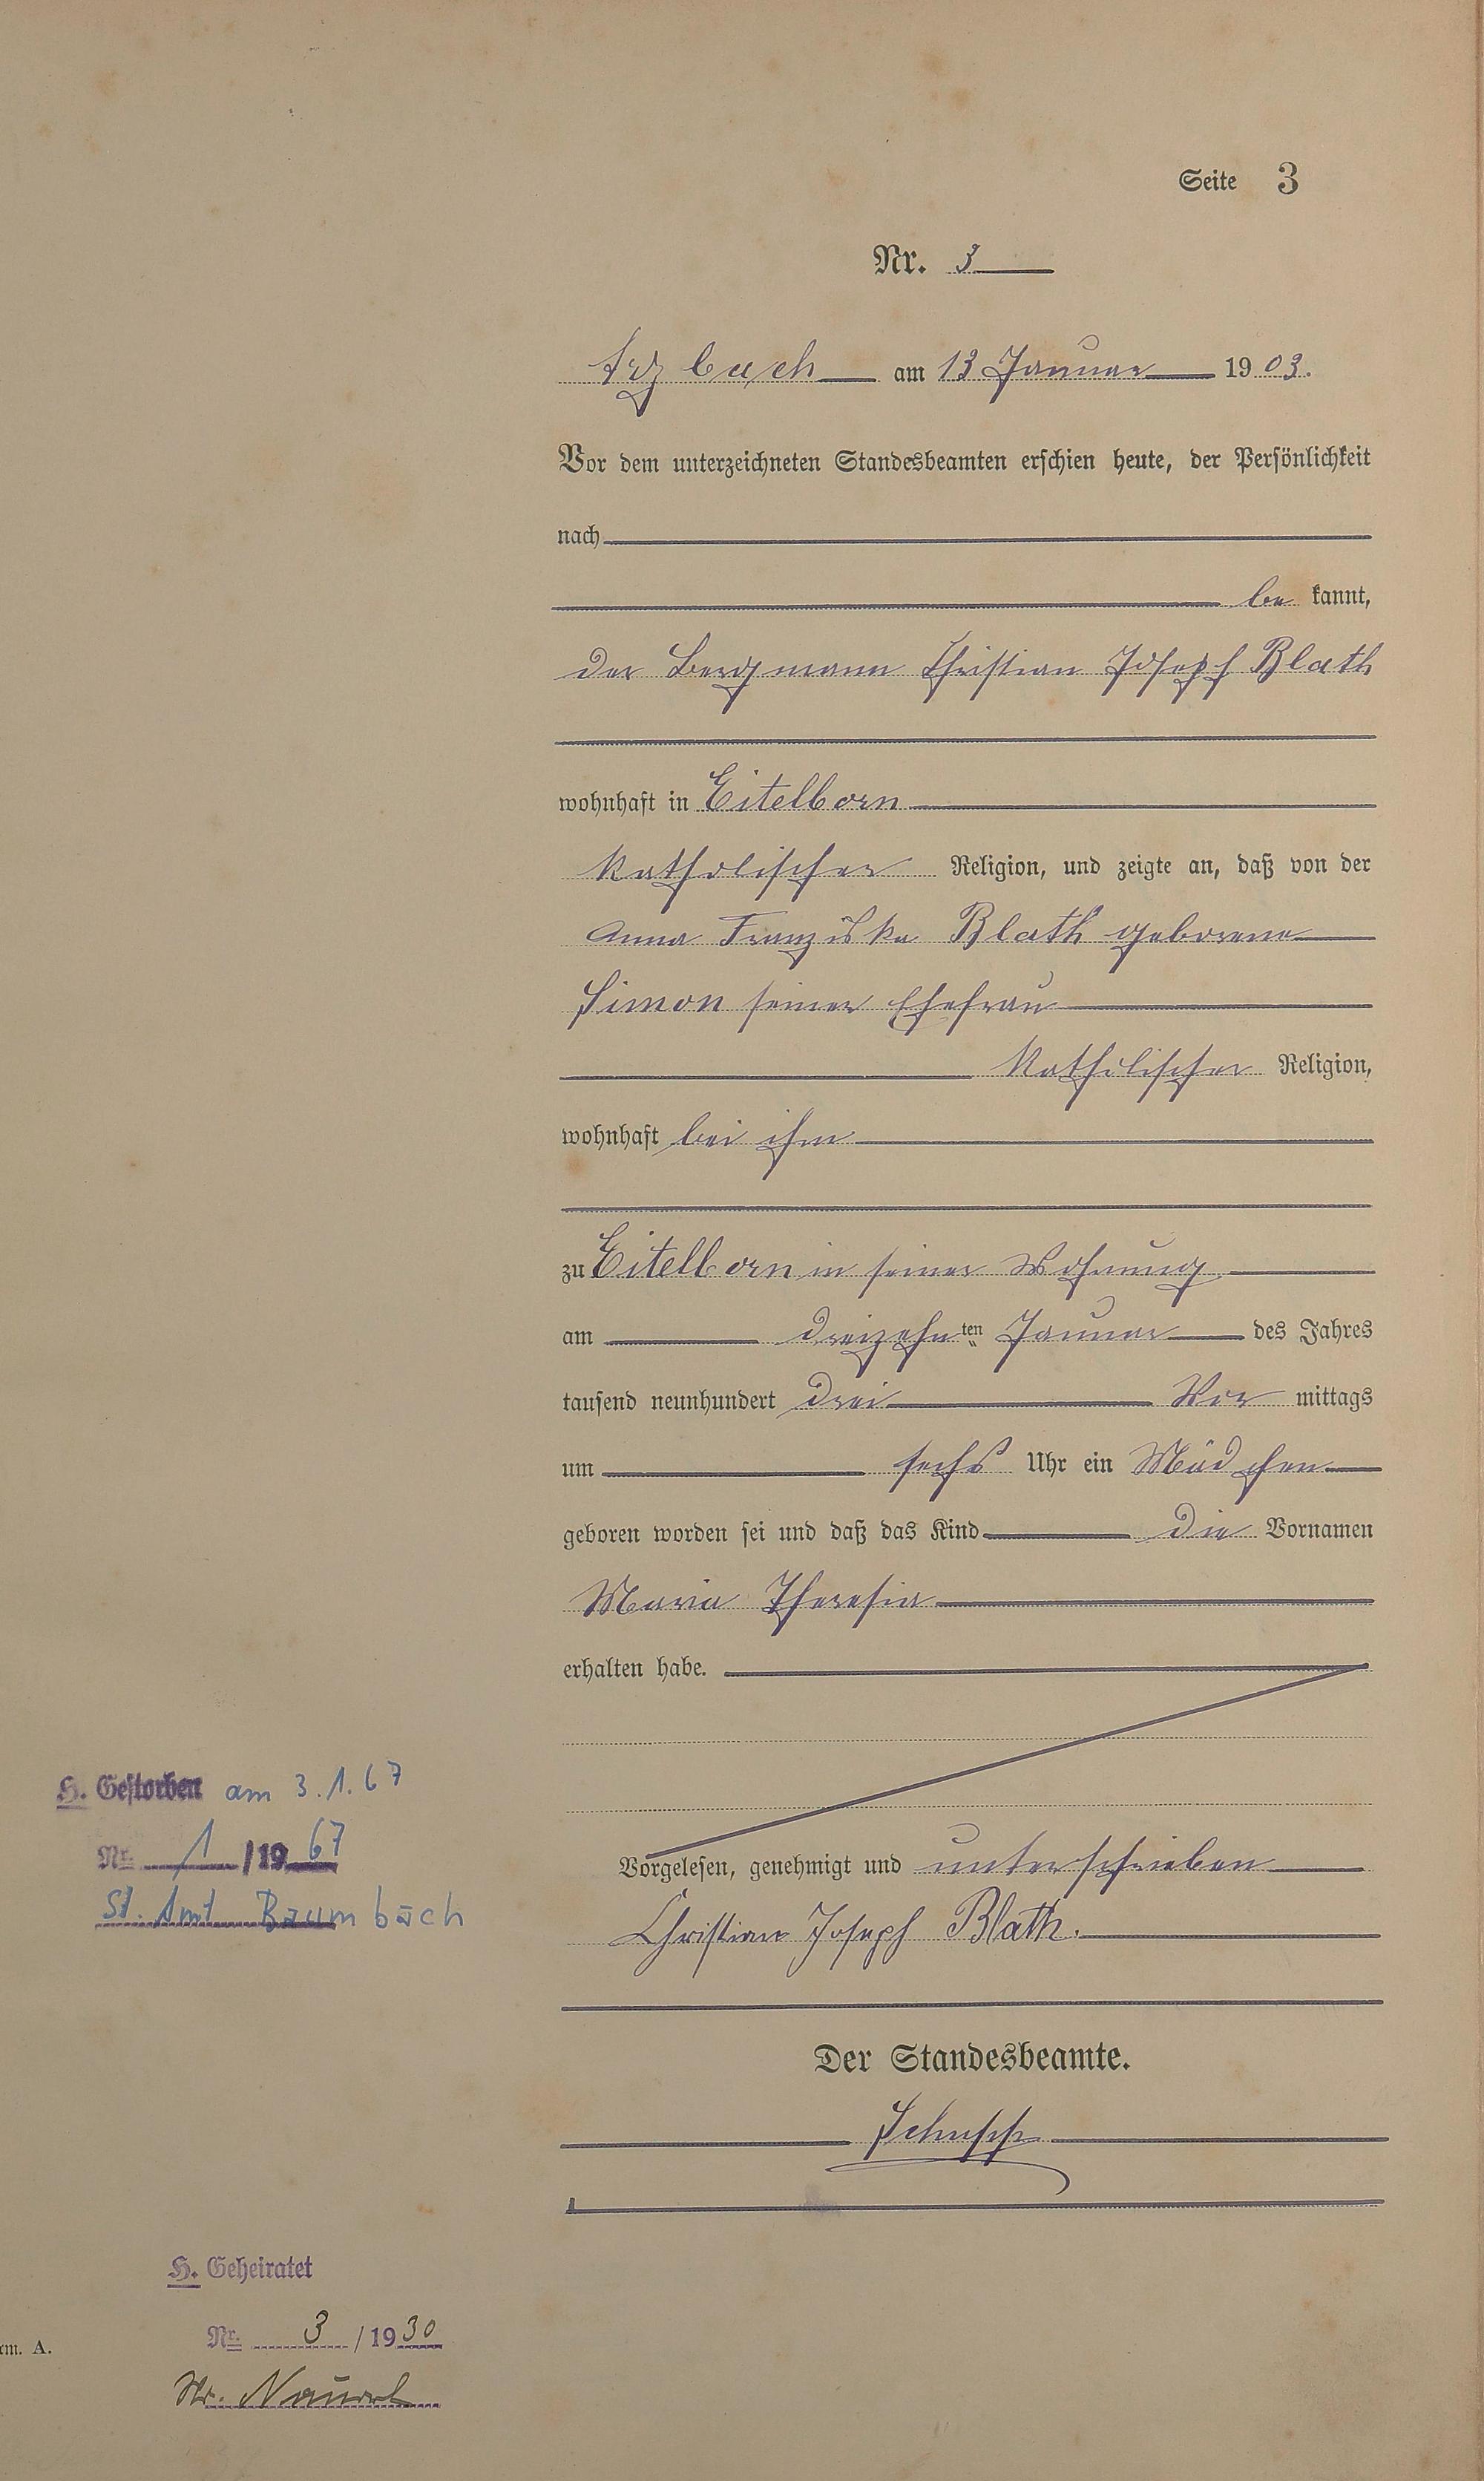 Seite 3
Nr. 3
Arzbach am 13 Januar 1903.
Vor dem unterzeichneten Standesbeamten erschien heute, der Persönlichkeit
nach
be kannt,
der Bergmann Christian Joseph Blath
wohnhaft in Eitelborn
katholischer Religion, und zeigte an, daß von der
Anna Franziska Blath geborene
Simon seiner Ehefrau
katholischer Religion,
wohnhaft bei ihm
zu Eitelborn in seiner Wohnung
am dreizehnten Januar des Jahres
tausend neunhundert drei Vor mittags
um sechs Uhr ein Mädchen
geboren worden sei und daß das Kind die Vornamen
Maria Theresia
erhalten habe.
Vorgelesen, genehmigt und unterschrieben
Christian Joseph Blath.
Der Standesbeamte.
H. Gestorben am 3.1.67
Nr. 1/1967
St. Amt Baumbach
H. Geheiratet
Nr. 3/1930
rm. A.